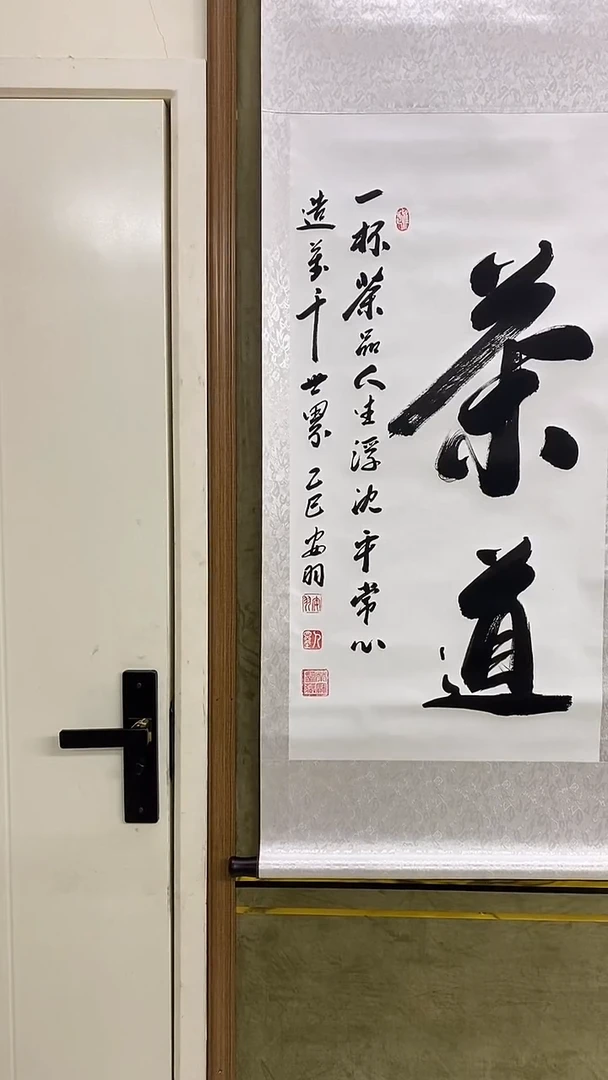 茶道
一杯茶品人生浮沈平常心
造万千世界乙巳安羽